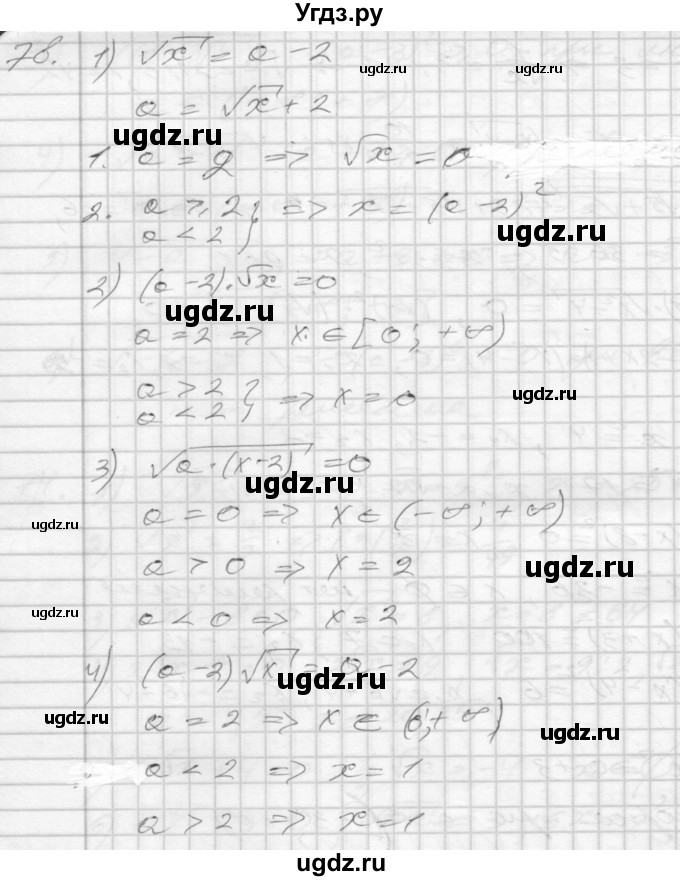 Угдз.ру
78. 1) √x = a - 2
ugdz.ru ugdz.ru
a = √x + 2
ugdz.ru
1. a = 2 => √x = 0
2. a ≥ 2 } => x = (a - 2)²
a < 2 }
ugdz.ru
2) (a - 2)·√x = 0
ugdz.ru
a = 2 => x ∈ [0; +∞)
a > 2 } => x = 0
a < 2 }
ugdz.ru
3) √a·(x-2) = 0
ugdz.ru
a = 0 => x ∈ (-∞; +∞)
ugdz.ru
a > 0 => x = 2
ugdz.ru
a < 0 => x = 2
ugdz.ru
4) (a - 2)√x = a - 2
ugdz.ru
a = 2 => x ∈ (0; +∞)
ugdz.ru
ugdz.ru
a < 2 => x = 1
a > 2 => x = 1
ugdz.ru